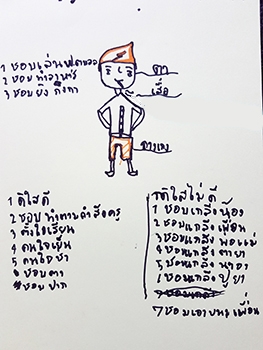 1 ชอบเล่นฟุตบอล
2 ชอบทำอาหาร
3 ชอบยิงกิ้งก่า
ตา
เสื้อ
กางเกง
1 ดีใสดี
2 ชอบ ทำตามคำสั่งครู
3 ตั้งใจเรียน
4 คนใจเย็น
5 คนใจ
6 ชอบ
7 ชอบ
ใสไม่ดี
1 ชอบแกล้งน้อง
2 ชอบแกล้งเพื่อน
3 ชอบแกล้งพ่อแม่
4 ชอบแกล้งตายา
5 ชอบแกล้ง
6 ชอบแกล้งปู่ยา
7 ชอบเอาเพื่อน